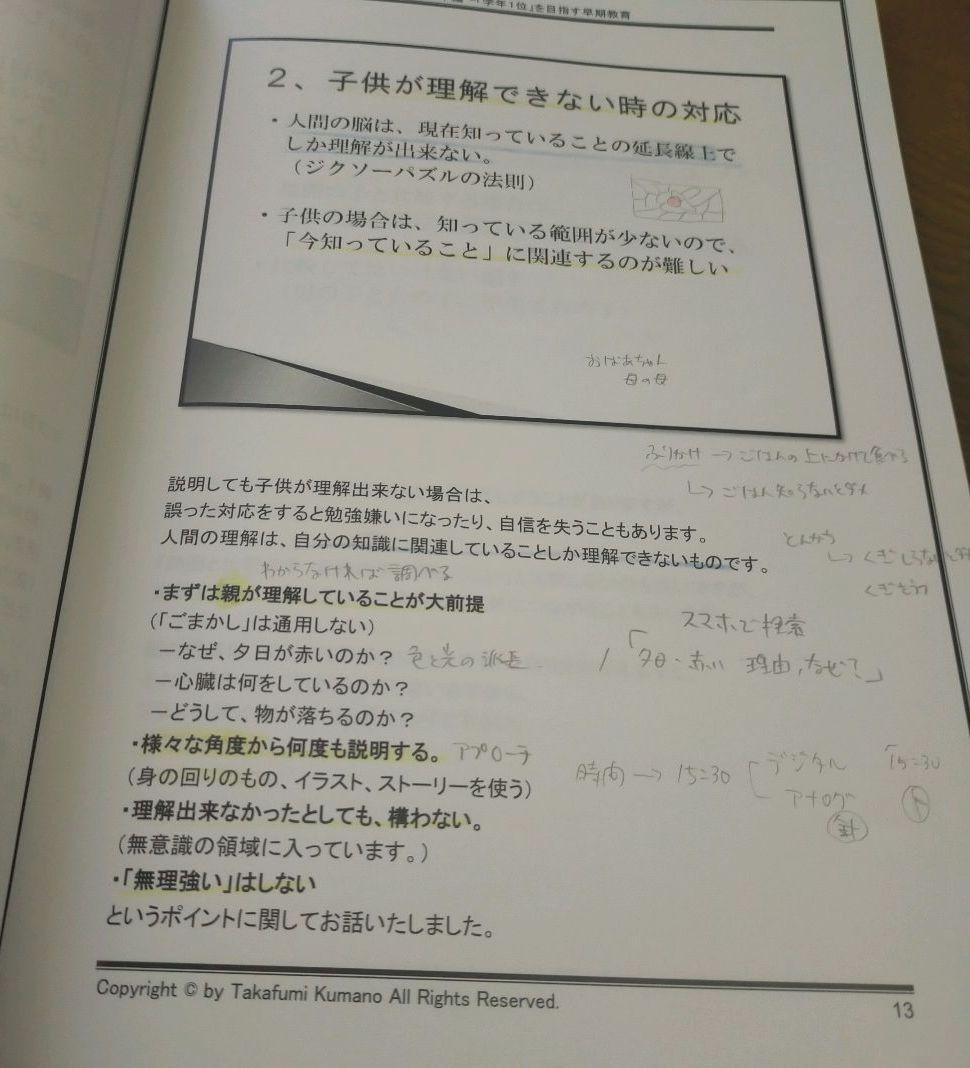 学年1位」を目指す早期教育
2、子供が理解できない時の対応
・人間の脳は、現在知っていることの延長線上で
しか理解が出来ない。
（ジクソーパズルの法則）
・子供の場合は、知っている範囲が少ないので、
「今知っていること」に関連するのが難しい
おばあちゃん
母の母
ふりかけ → ごはんの上にかけて食べる
↳ ごはん知らないとダメ
説明しても子供が理解出来ない場合は、
誤った対応をすると勉強嫌いになったり、自信を失うこともあります。
人間の理解は、自分の知識に関連していることしか理解できないものです。
とんかち
わからなければ調べる
・まずは親が理解していることが大前提
（「ごまかし」は通用しない）
スマホで検索
－なぜ、夕日が赤いのか？ 色と光の波長
「夕日・赤い 理由、なぜ？」
－心臓は何をしているのか？
－どうして、物が落ちるのか？
・様々な角度から何度も説明する。 アプローチ
（身の回りのもの、イラスト、ストーリーを使う）
時間 → 15:30
デジタル 15:30
アナログ
針
・理解出来なかったとしても、構わない。
（無意識の領域に入っています。）
・「無理強い」はしない
というポイントに関してお話いたしました。
Copyright © by Takafumi Kumano All Rights Reserved.
13